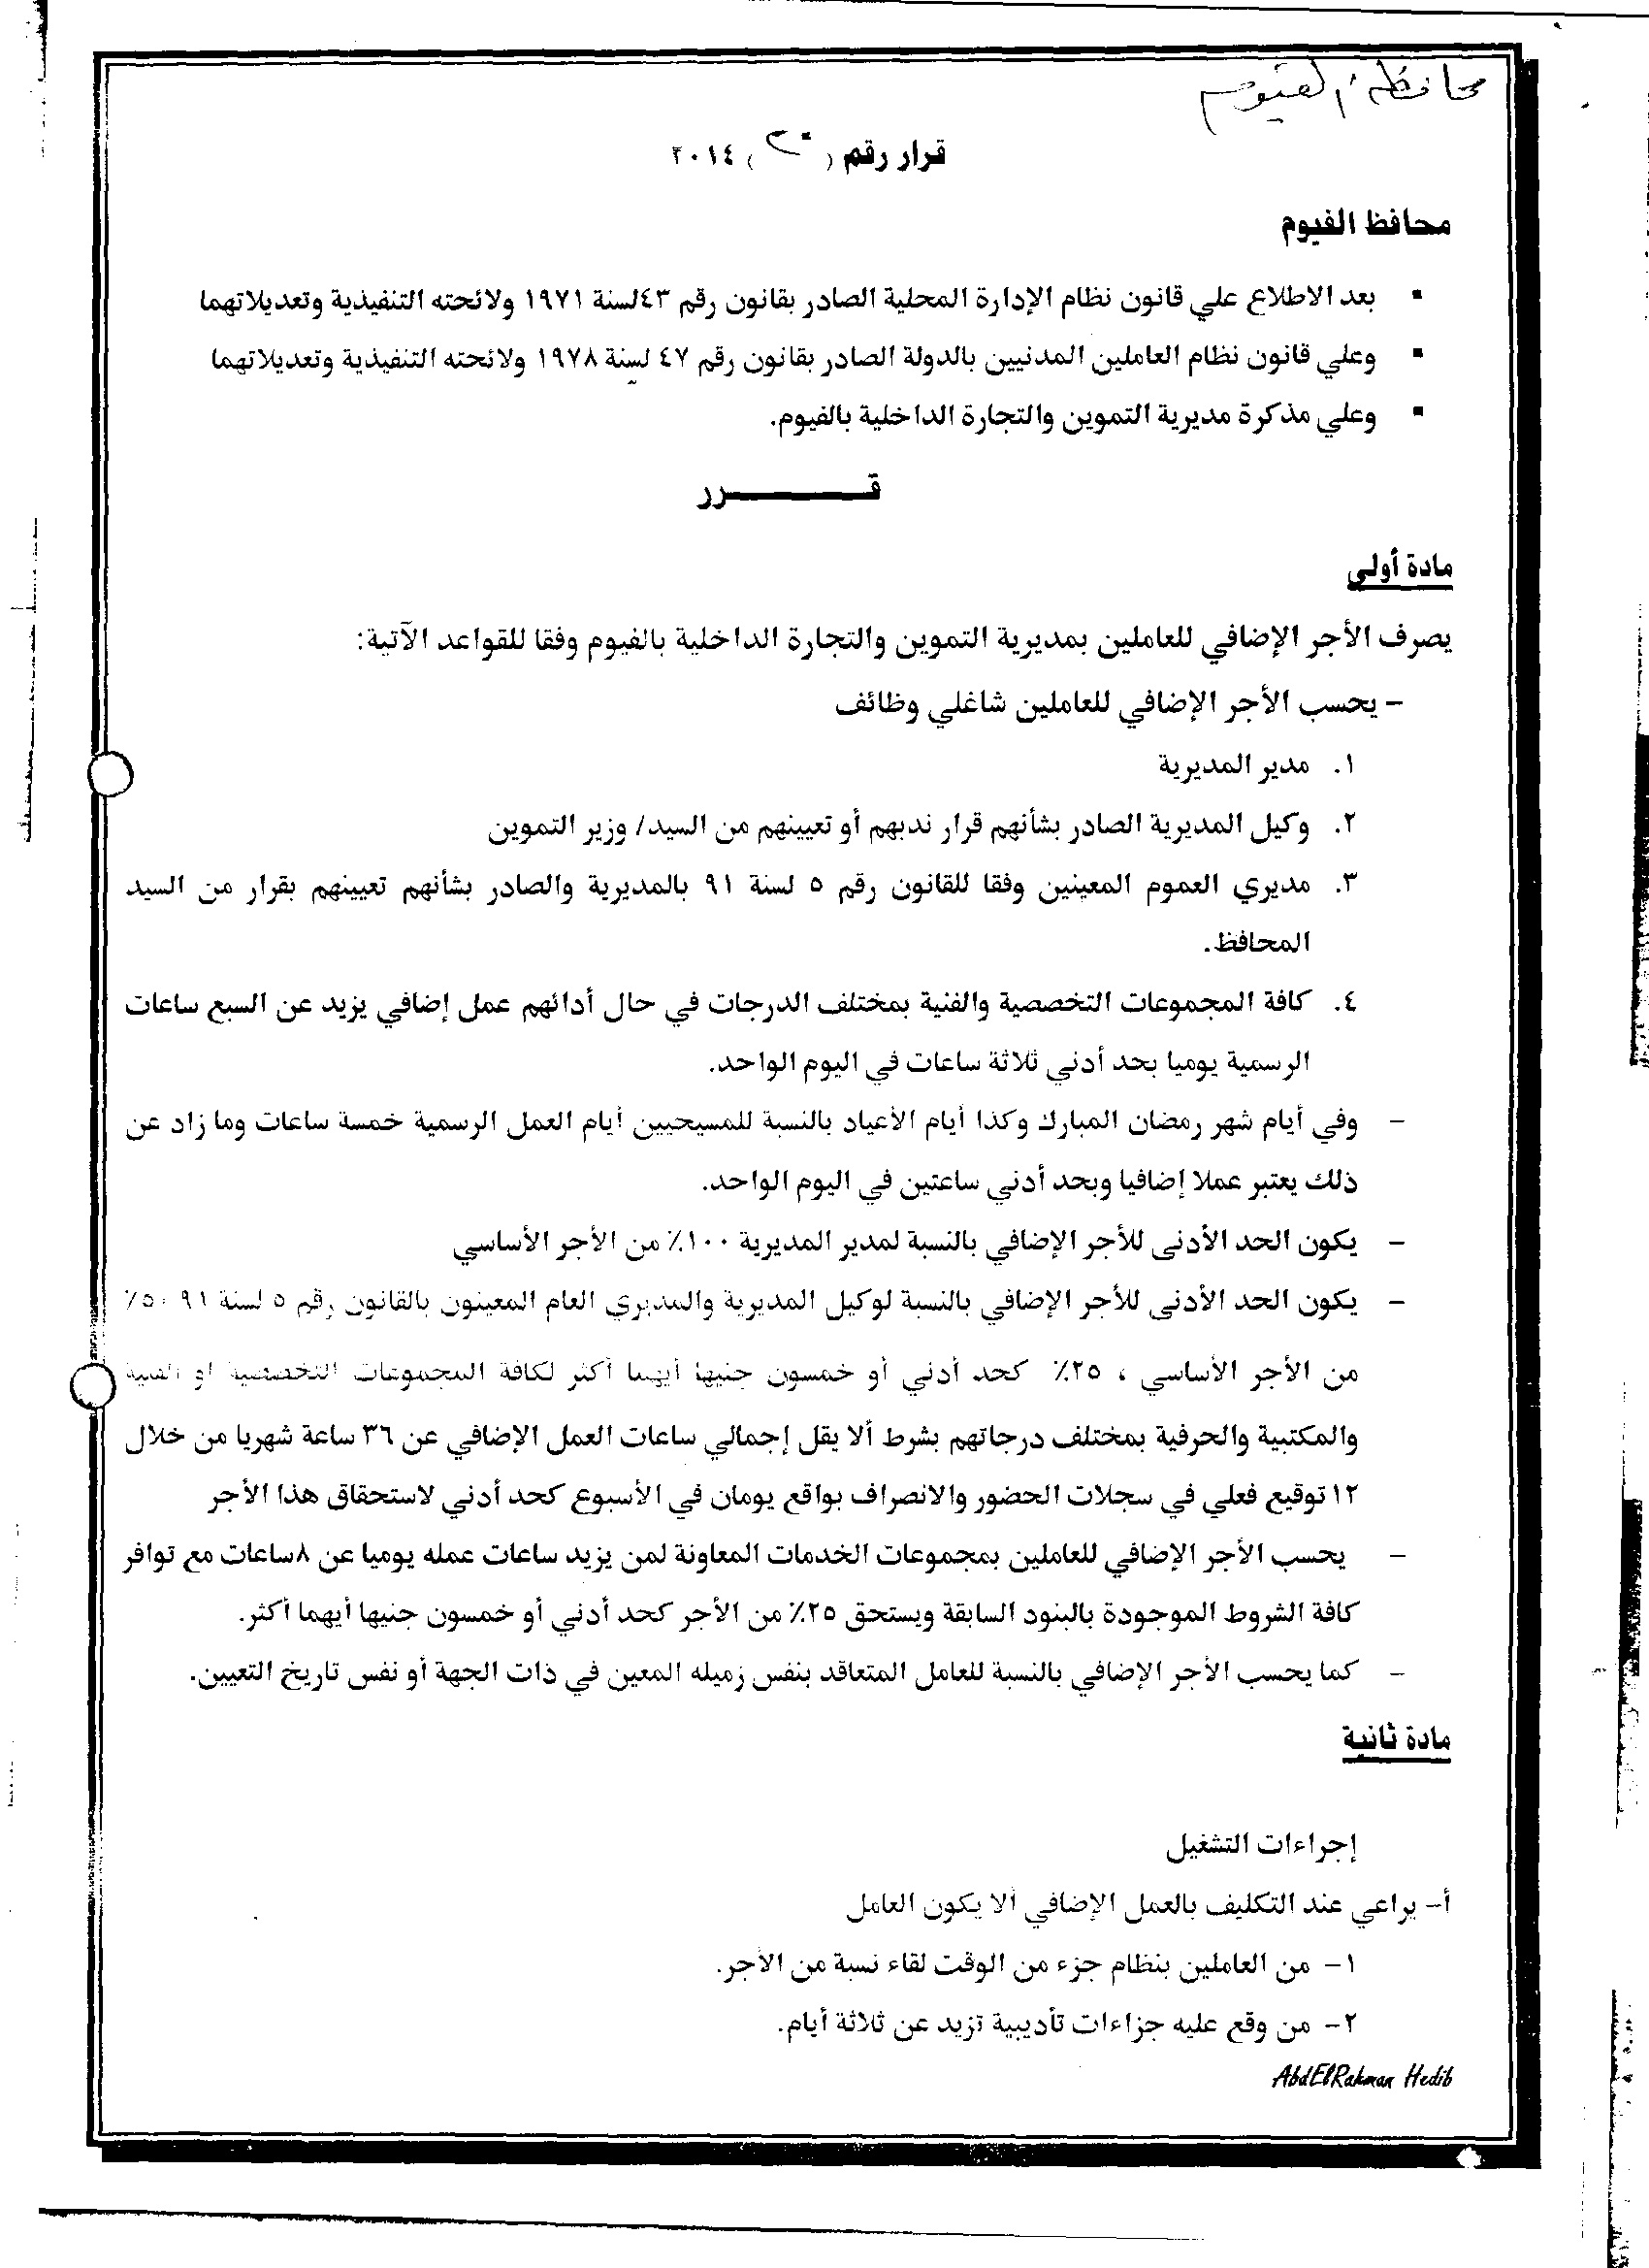 محافظة الفيوم
قرار رقم ( ) ٢٠١٤
محافظ الفيوم
▪ بعد الاطلاع علي قانون نظام الإدارة المحلية الصادر بقانون رقم ٤٣لسنة ١٩٧١ ولائحته التنفيذية وتعديلاتهما
▪ وعلي قانون نظام العاملين المدنيين بالدولة الصادر بقانون رقم ٤٧ لسنة ١٩٧٨ ولائحته التنفيذية وتعديلاتهما
▪ وعلي مذكرة مديرية التموين والتجارة الداخلية بالفيوم.
قـــــــــرر
مادة أولى
يصرف الأجر الإضافي للعاملين بمديرية التموين والتجارة الداخلية بالفيوم وفقا للقواعد الآتية:
– يحسب الأجر الإضافي للعاملين شاغلي وظائف
١. مدير المديرية
٢. وكيل المديرية الصادر بشأنهم قرار ندبهم أو تعيينهم من السيد/ وزير التموين
٣. مديري العموم المعينين وفقا للقانون رقم ٥ لسنة ٩١ بالمديرية والصادر بشأنهم تعيينهم بقرار من السيد
المحافظ.
٤. كافة المجموعات التخصصية والفنية بمختلف الدرجات في حال أدائهم عمل إضافي يزيد عن السبع ساعات
الرسمية يوميا بحد أدني ثلاثة ساعات في اليوم الواحد.
– وفي أيام شهر رمضان المبارك وكذا أيام الأعياد بالنسبة للمسيحيين أيام العمل الرسمية خمسة ساعات وما زاد عن
ذلك يعتبر عملا إضافيا وبحد أدني ساعتين في اليوم الواحد.
– يكون الحد الأدنى للأجر الإضافي بالنسبة لمدير المديرية ١٠٠٪ من الأجر الأساسي
– يكون الحد الأدنى للأجر الإضافي بالنسبة لوكيل المديرية والمديري العام المعينون بالقانون رقم ٥ لسنة ٩١ ٥٠٪
من الأجر الأساسي ، ٢٥٪ كحد أدني أو خمسون جنيها أيهما أكثر لكافة المجموعات التخصصية او الفنية
والمكتبية والحرفية بمختلف درجاتهم بشرط ألا يقل إجمالي ساعات العمل الإضافي عن ٣٦ ساعة شهريا من خلال
١٢ توقيع فعلي في سجلات الحضور والانصراف بواقع يومان في الأسبوع كحد أدني لاستحقاق هذا الأجر
– يحسب الأجر الإضافي للعاملين بمجموعات الخدمات المعاونة لمن يزيد ساعات عمله يوميا عن ٨ساعات مع توافر
كافة الشروط الموجودة بالبنود السابقة ويستحق ٢٥٪ من الأجر كحد أدني أو خمسون جنيها أيهما أكثر.
– كما يحسب الأجر الإضافي بالنسبة للعامل المتعاقد بنفس زميله المعين في ذات الجهة أو نفس تاريخ التعيين.
مادة ثانية
إجراءات التشغيل
أ– يراعي عند التكليف بالعمل الإضافي ألا يكون العامل
١– من العاملين بنظام جزء من الوقت لقاء نسبة من الأجر.
٢– من وقع عليه جزاءات تأديبية تزيد عن ثلاثة أيام.
AbdElRahman Hedib